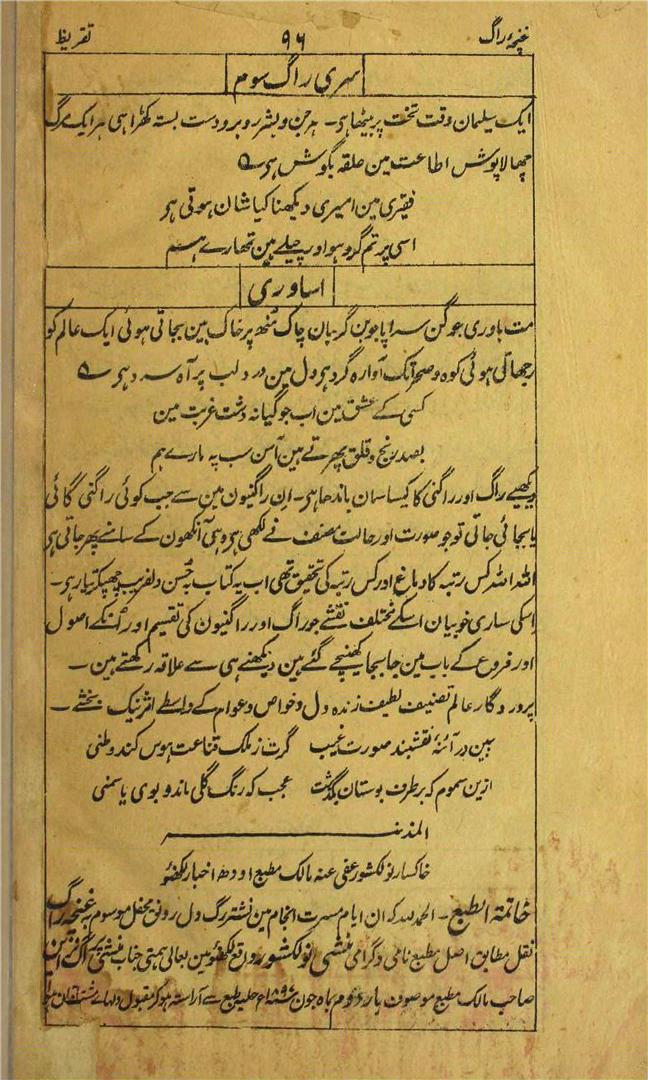 غنچۂ راگ ۹۶ تقریظ
سہری راگ سوم
ایک سلیمان وقت تخت پر بیٹھا ہی۔ ہر جن و بشر روبرو دست بستہ کھڑا ہی ہر ایک مرگ
چھالا پوش اطاعت مین حلقہ بگوش ہی ؎
فقیری مین امیری دیکھنا کیا شان ہوتی ہی
اسی پر تم گرو ہو اور چیلے ہین تمھارے ہم
اساوری
مت باوری جوگن سراپا جوبن گریبان چاک مُنھ پر خاک بین بجاتی ہوئی ایک عالم کو
رجھاتی ہوئی کوہ و صحرا تک آوارہ گرد ہی دل مین درد لب پر آہ سرد ہی ؎
کسی کے عشق مین اب جوگیانہ دشت غربت مین
بصد رنج و قلق پھرتے ہین آسن سب پہ مارے ہم
دیکھیے راگ اور راگنی کا کیسا سمان باندھا ہی۔ اِن راگنیون مین سے جب کوئی راگنی گائی
یا بجائی جاتی تو جو صورت اور حالت مصنف نے لکھی ہی وہی آنکھون کے سامنے پھر جاتی ہی
اللہ اللہ کس رتبہ کا دماغ اور کس رتبہ کی تحقیق تھی اب یہ کتاب بہ حُسن دلفریب چھپکر تیار ہی۔
اسکی ساری خوبیان اسکے مختلف نقشے جو راگ اور راگنیون کی تقسیم اور اُنکے اصول
اور فروع کے باب مین جا بجا کھینچے گئے ہین دیکھنے ہی سے علاقہ رکھتے ہین۔
پروردگار عالم تصنیف لطیف زندہ دل و خواص و عوام کے واسطے اثر نیک بخشے۔
ببین در آئنۂ نقشبند صورت غیب گرت ز ملک قناعت ہوس کند وطنی
ازین سموم کہ بر طرف بوستان بگذشت عجب کہ رنگ گلی ماند و بوی یاسمنی
المذنب
خاکسار نولکشور عفی عنہ مالک مطبع اودھ اخبار لکھنؤ
خاتمۃ الطبع۔ الحمد للہ کہ ان ایام مسرت انجام مین نشتر رگ دل رونق محفل موسوم بہ غنچۂ راگ
نقل مطابق اصل مطبع نامی و گرامی منشی نولکشور واقع لکھنؤ مین بعالی ہمتی جناب منشی پراگ نراین
صاحب مالک مطبع موصوف بار دوم بماہ جون سنہ ۱۸۹۶ع حلیۂ طبع سے آراستہ ہوکر مقبول دلہاے مشتاقان ہوا